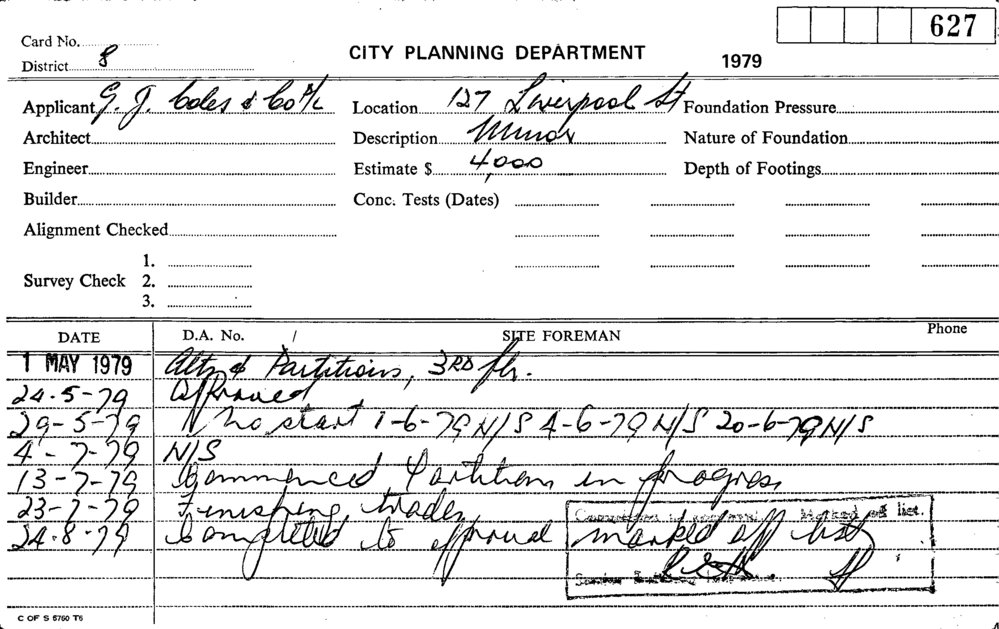 627
Card No.
CITY PLANNING DEPARTMENT 1979
District 8
Applicant G. J. Coles & Co P/L Location 127 Liverpool St Foundation Pressure
Architect Description Minor Nature of Foundation
Engineer Estimate $ 4,000 Depth of Footings
Builder Conc. Tests (Dates)
Alignment Checked
1.
Survey Check 2.
3.
DATE D.A. No. / SITE FOREMAN Phone
1 MAY 1979 Altns & Partitions, 3RD flr.
24-5-79 Approved
29-5-79 No start 1-6-79 N/S 4-6-79 N/S 20-6-79 N/S
4-7-79 N/S
13-7-79 Commenced Partitions in progress
23-7-79 Finishing trades
24-8-79 Completed to approval marked off list
Marked off list.
C OF S 6760 T6